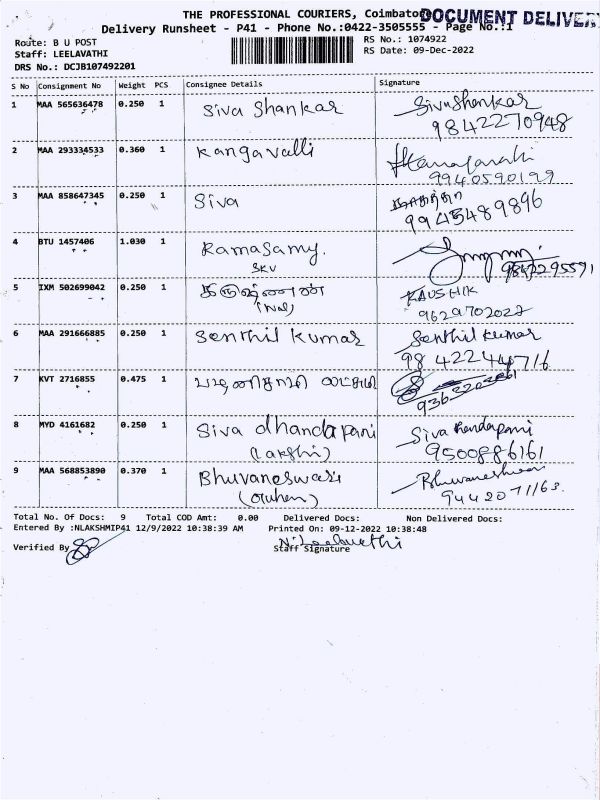 THE PROFESSIONAL COURIERS, Coimbato DOCUMENT DELIVER
Delivery Runsheet - P41 - Phone No.:0422-3505555 - Page No.:1
Route: B U POST
Staff: LEELAVATHI
DRS No.: DCJB107492201
RS No.: 1074922
RS Date: 09-Dec-2022
S No Consignment No Weight PCS Consignee Details Signature
1 MAA 565636478 0.250 1 Siva Shankar Sivashankar
9842270948
2 MAA 293334533 0.360 1 Kangavalli
9940590199
3 MAA 858647345 0.250 1 Siva
9945489896
4 BTU 1457406 1.030 1 Ramasamy.
SKV 9842295591
5 IXM 502699042 0.250 1 KAUSHIK
9629702027
6 MAA 291666885 0.250 1 Senthil Kumar Senthil Kumar
7 KVT 2716855 0.475 1
8 MYD 4161682 0.250 1 Siva dhandapani Siva dhandapani
9500886161
9 MAA 568853890 0.370 1 Bhuvaneswari Bhuvaneshwari
Total No. Of Docs: 9 Total COD Amt: 0.00 Delivered Docs: Non Delivered Docs:
Entered By :NLAKSHMIP41 12/9/2022 10:38:39 AM Printed On: 09-12-2022 10:38:48
N. Leelavathi
Verified By Staff Signature